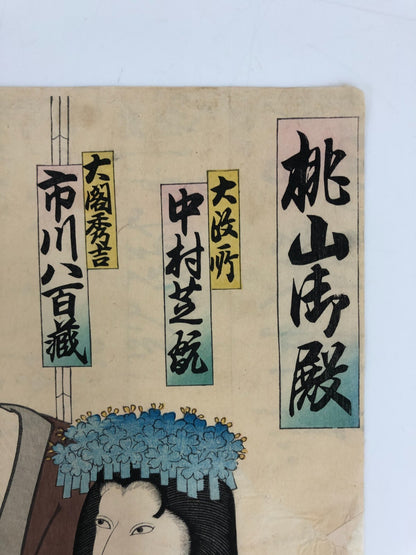 桃山御殿
大政所
中村芝翫
大閤秀吉
市川八百藏